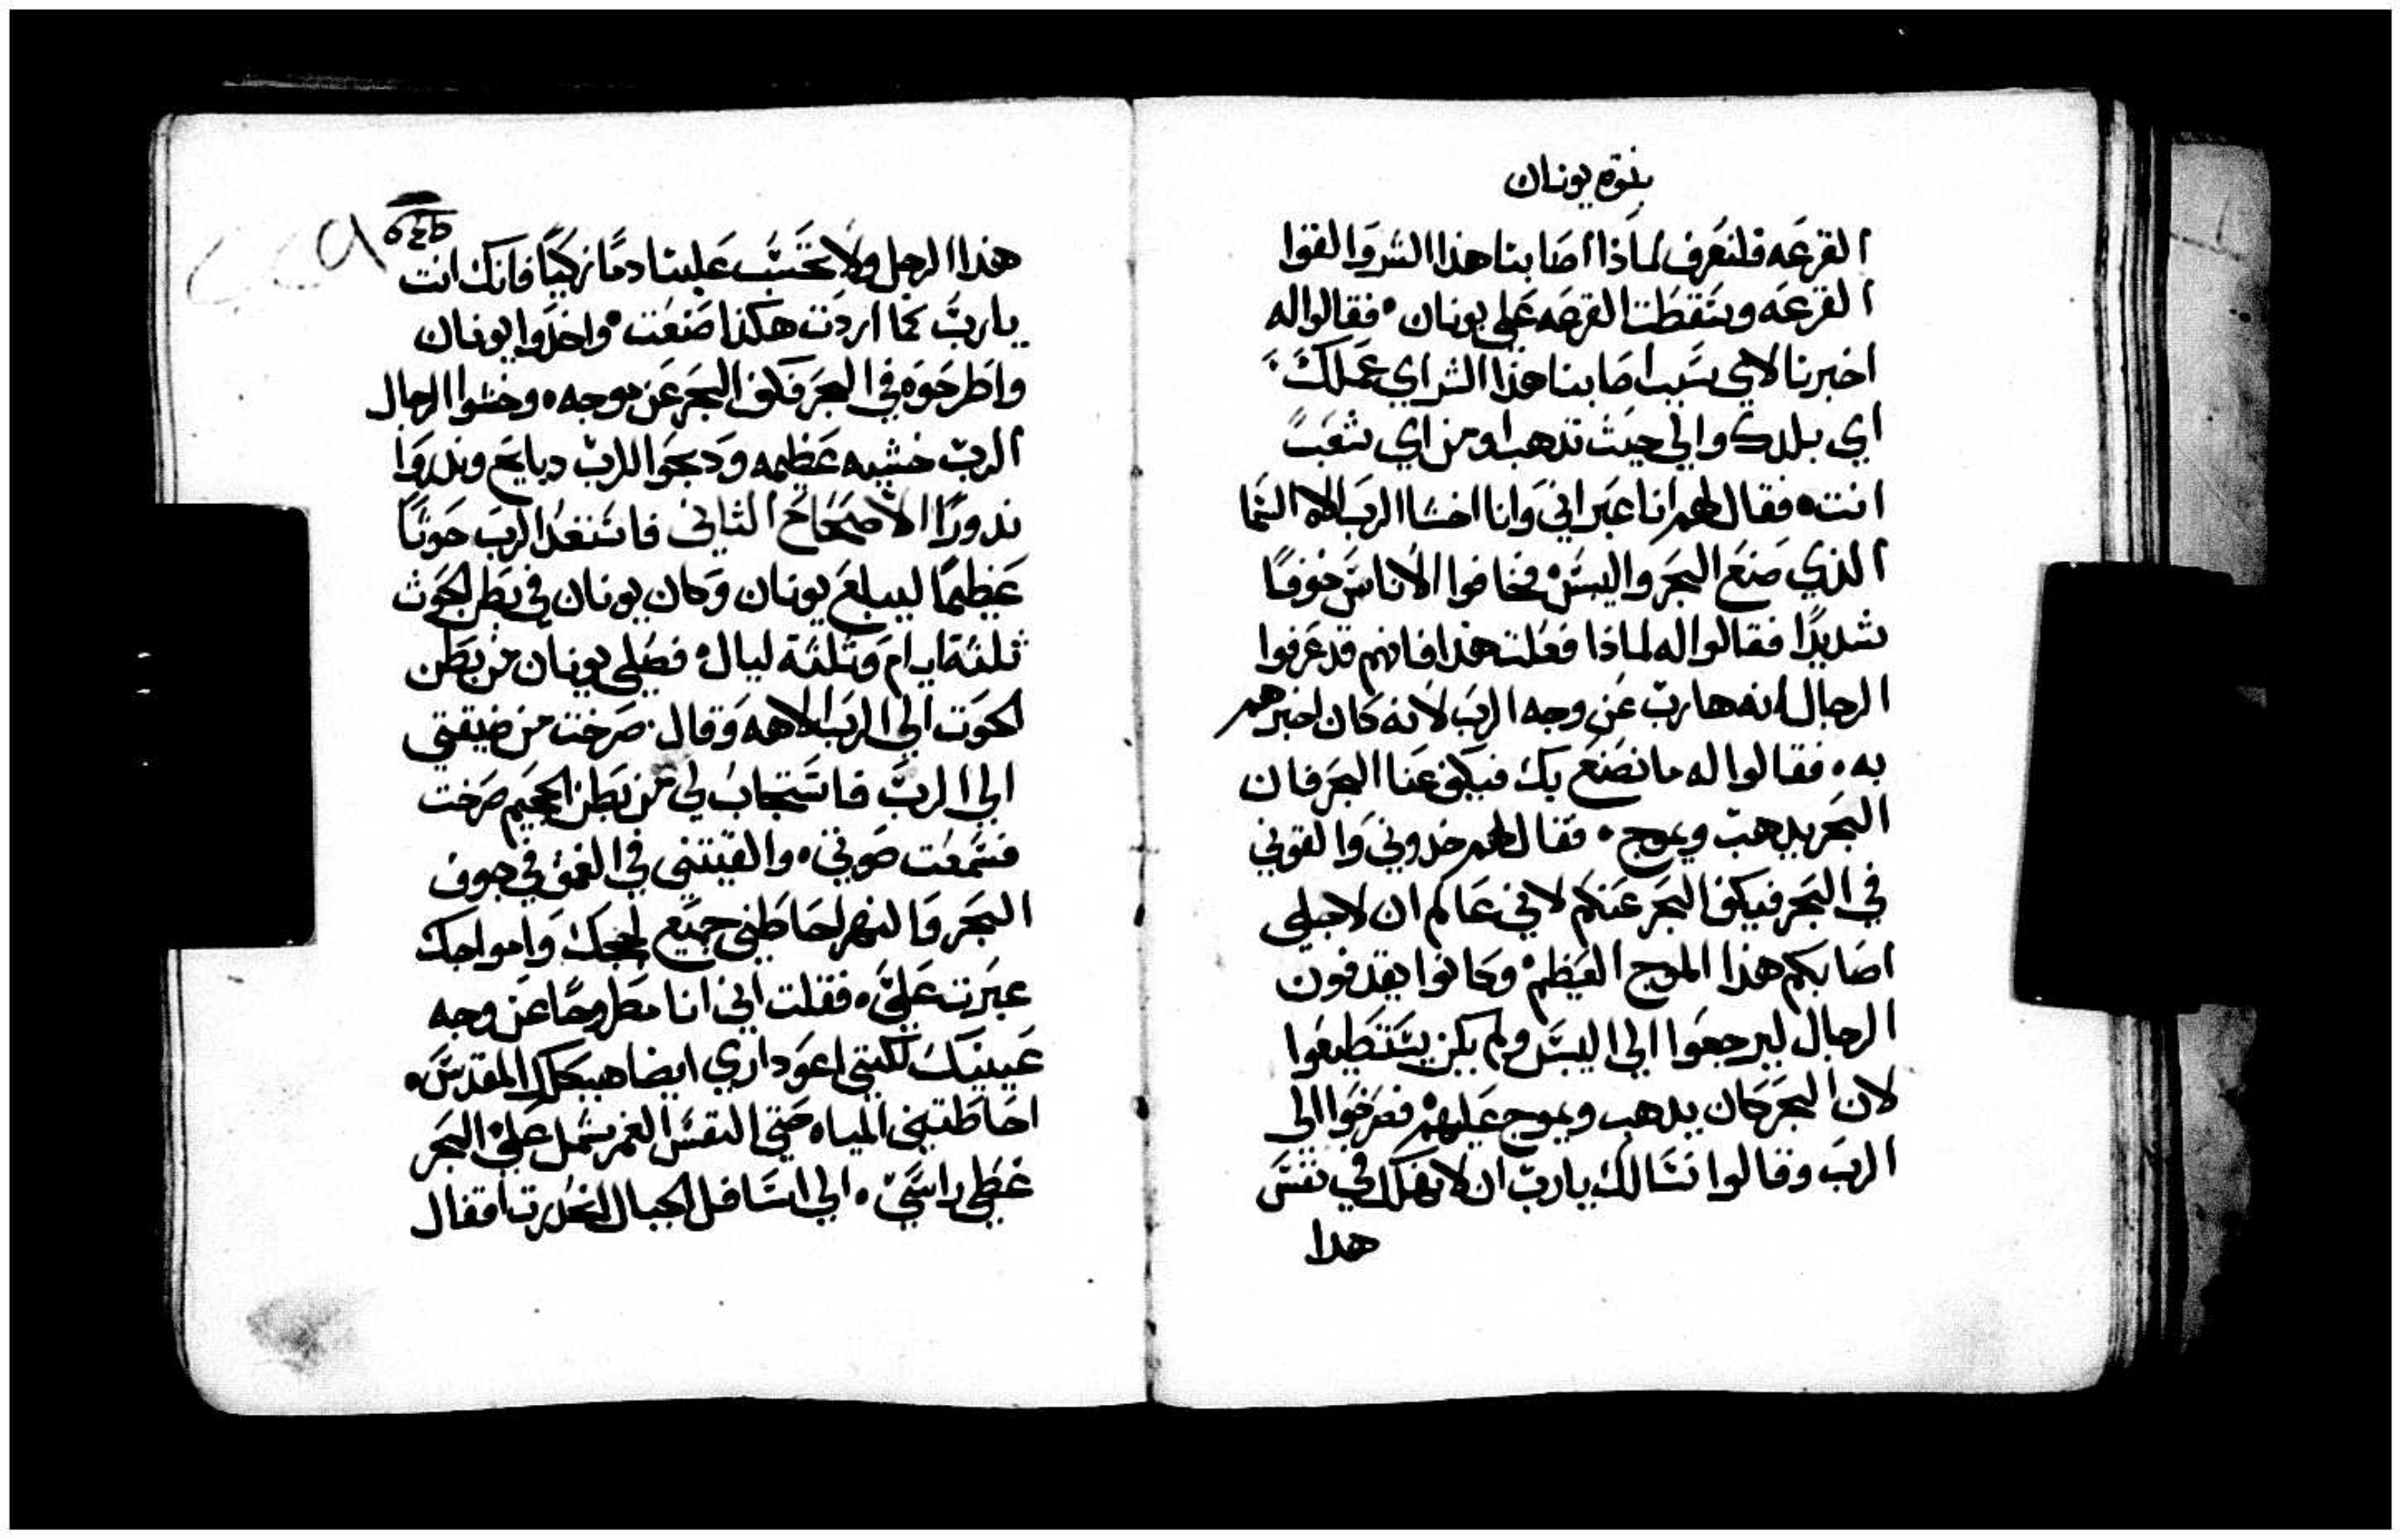 بنوة يونان
القرعَه فلنعَرف لماذا اصَابنا هذا الشر وَالقوا
القرعَه وسَقطَت القرعَه عَلي يونان • فقالوا له
اخبرنا لاي سَبب اصَابنا هذا الشر اي عَملكَ
اي بلدك والي حيَث تذهب او من اي شعَبً
انت • فقال لهم انا عَبراني وَانا اخشا الرَب الاه السَما
الذي صَنعَ البحَر واليبسَ فخافوا الاناسَ خوفًا
شديدًا فقالوا له لماذا فعَلت هذا فانهم قد عَرفوا
الرجال انه هاربّ عَن وجه الربَ لانه كان اخبرهم
به • فقالوا له ما نصَنعَ بك فيكف عَنا البحَر فان
البحَر يدهبّ ويموج • فقال لهم خدوني وَالقوني
في البحَر فيكف البحَر عَنكم لاني عَالم ان لاجلي
اصَابكم هذا الموج العَظيم وكانوا يقدفون
الرجال ليرجعَوا الي اليبسَ ولم يكن يسَتطَيعَوا
لان البحَر كان يدهب ويموج عَليهم فصَرخَوا الي
الربَ وقالوا نسَالك ياربّ ان لا نهلك في نفسَ
هدا
٥٤٥
هذا الرجل ولا تحَسَب عَلينا دمًا زكيًا فانك انت
ياربَّ كما اردَت هكذا صَنعَت • واخذَوا يونان
واطَرحَوَه في البحَر فكف البحَر عَن موجه • وخشوا الرجال
الربّ خشيه عَظيمه وَدبحَوا للربّ دبايحَ وندروَا
ندورًا الاصَحَاحَ الثاني فاسَتعَد الربَ حَوتًا
عَظيمًا ليبلعَ يونان وَكان يونان في بطَن الحَوت
ثلثة ايام وَثلثة ليال • فصَلي يونان من بطَن
الحَوت الي الربَ الاهه وَقال • صَرخت من ضيقتي
الي الربَّ فاسَتجابَ لي من بطَن الجحَيم صَرخت
فسَمعَت صَوتي • والقيتني في العَمق في جوف
البحَر وَالنهر احَاطَني جميَع لججكَ وَامواجك
عبَرت عَليَّ • فقلت اني انا مطَروحًا عَن وجه
عَينيك لكنني اعَود اري ايضا هيكلك المقدسَ •
احَاطَت بي المياه حَتي النفسَ الغمر شمل عَليّ البحَر
غطَي راسَيّ • الي اسَافل الجبال انحَدرت اقفال